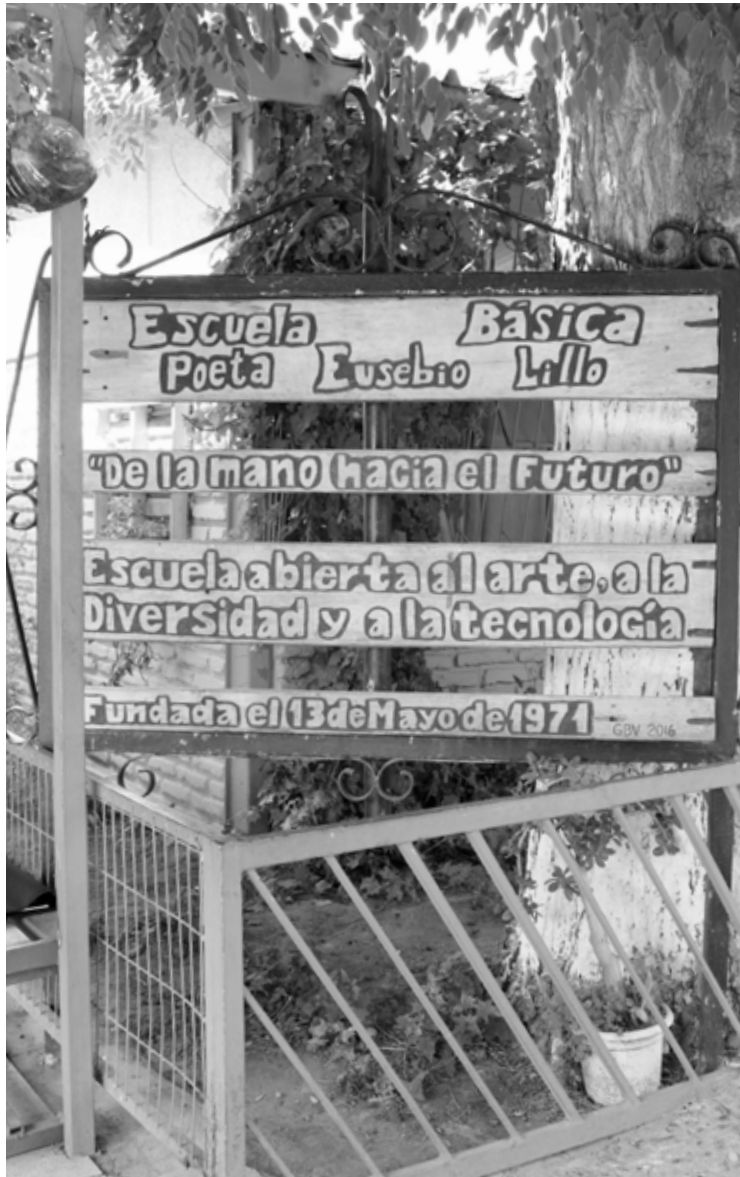 Escuela Básica
Poeta Eusebio Lillo
"De la mano hacia el Futuro"
Escuela abierta al arte, a la
Diversidad y a la tecnología
Fundada el 13 de Mayo de 1971
GBV 2016